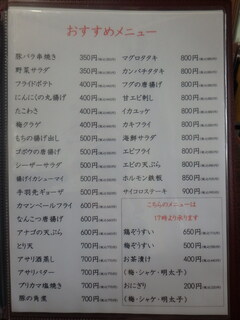 おすすめメニュー
豚バラ串焼き 350円
野菜サラダ 350円
フライドポテト 400円
にんにくの丸揚げ 400円
たこわさ 400円
梅クラゲ 400円
もちの揚げ出し 500円
ゴボウの唐揚げ 500円
シーザーサラダ 500円
揚げイカシューマイ 500円
手羽先ギョーザ 500円
カマンベールフライ 600円
なんこつ唐揚げ 600円
アナゴの天ぷら 600円
とり天 700円
アサリ酒蒸し 700円
アサリバター 700円
ブリカマ塩焼き 700円
豚の角煮 700円
マグロタタキ 800円
カンパチタタキ 800円
フグの唐揚げ 800円
甘エビ刺し 800円
イカユッケ 800円
カキフライ 800円
海鮮サラダ 800円
エビフライ 800円
エビの天ぷら 800円
ホルモン鉄板 850円
サイコロステーキ 900円
こちらのメニューは
17時より承ります
鶏ぞうすい 650円
梅ぞうすい 500円
お茶漬け 400円
（梅・シャケ・明太子）
おにぎり 200円
（梅・シャケ・明太子）